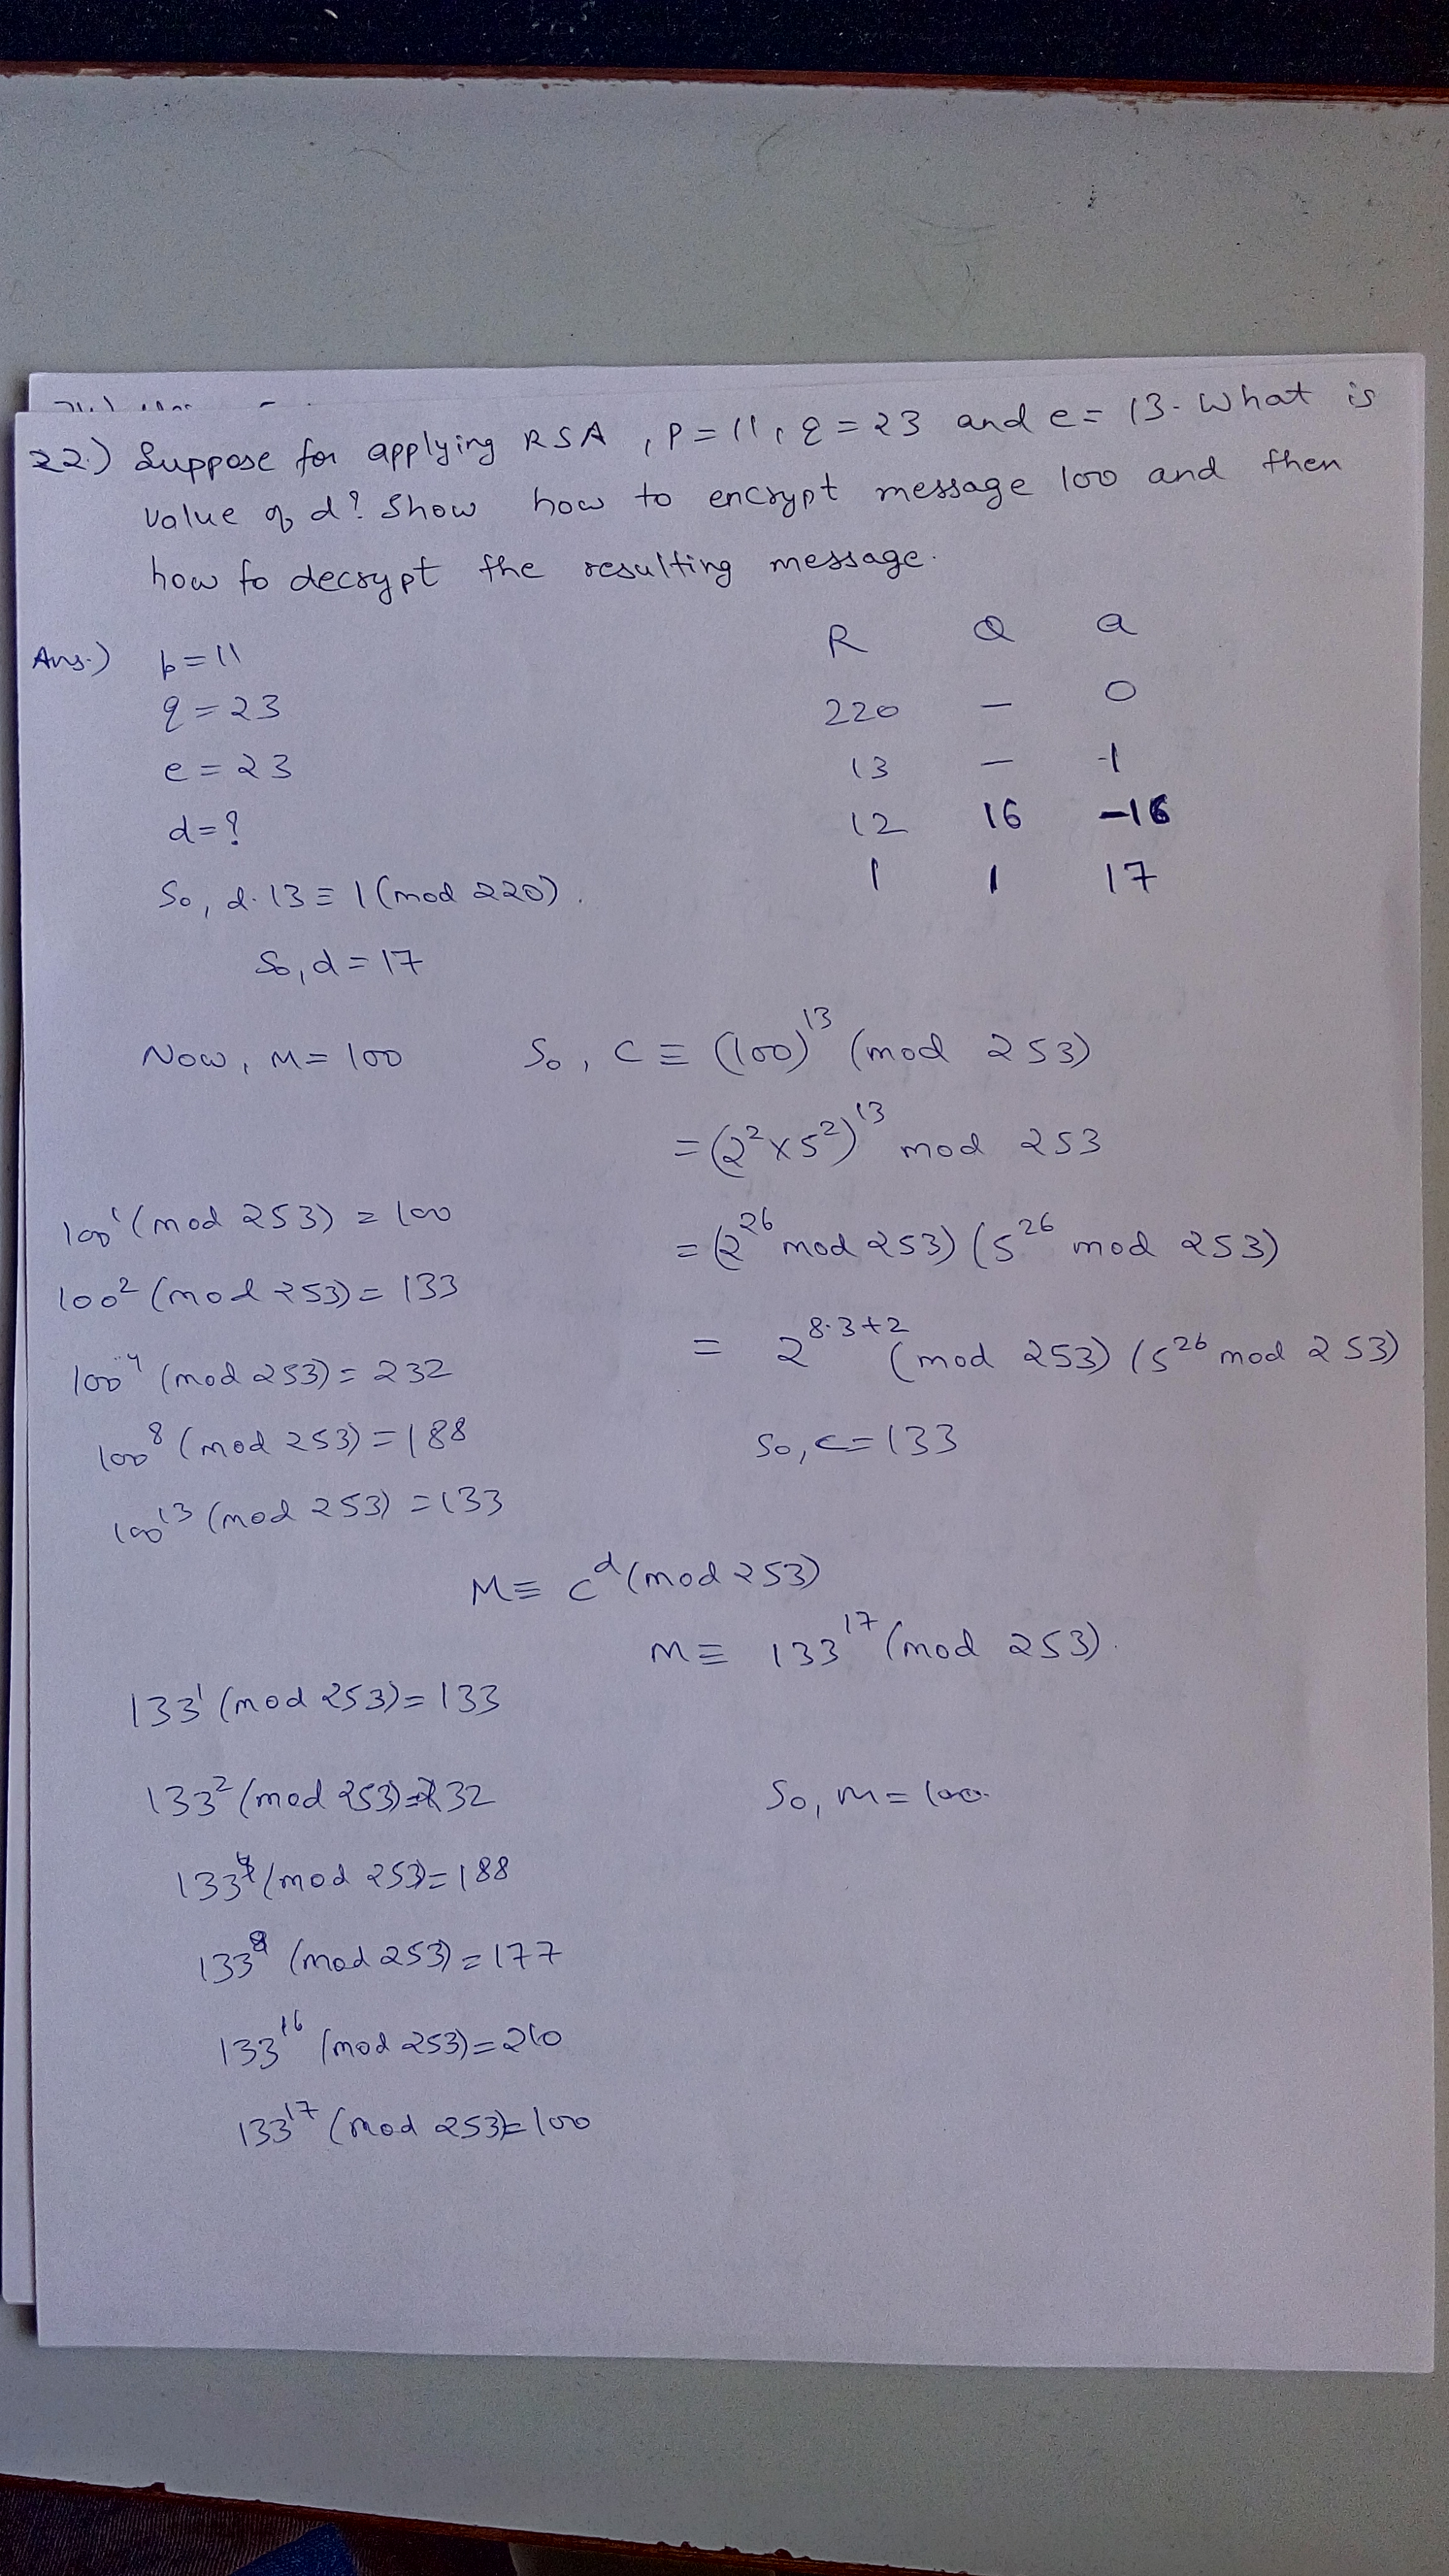 22.) Suppose for applying RSA, p=11, q=23 and e=13. What is
value of d? Show how to encrypt message 100 and then
how to decrypt the resulting message.
Ans.) p=11
q=23
e=23
d=?
So, d.13≡1(mod 220).
So, d=17
R Q a
220 — 0
13 — 1
12 16 -16
1 1 17
Now, M=100 So, C≡(100)^13 (mod 253)
=(2^2×5^2)^13 mod 253
=(2^26 mod 253)(5^26 mod 253)
= 2^8.3+2 (mod 253)(5^26 mod 253)
So, c=133
100^1 (mod 253) = 100
100^2 (mod 253) = 133
100^4 (mod 253) = 232
100^8 (mod 253) = 188
100^13 (mod 253) = 133
M≡ c^d (mod 253)
M≡ 133^17 (mod 253).
133^1 (mod 253) = 133
133^2 (mod 253) = 232
133^4 (mod 253) = 188
133^8 (mod 253) = 177
133^16 (mod 253) = 210
133^17 (mod 253) = 100
So, M=100.